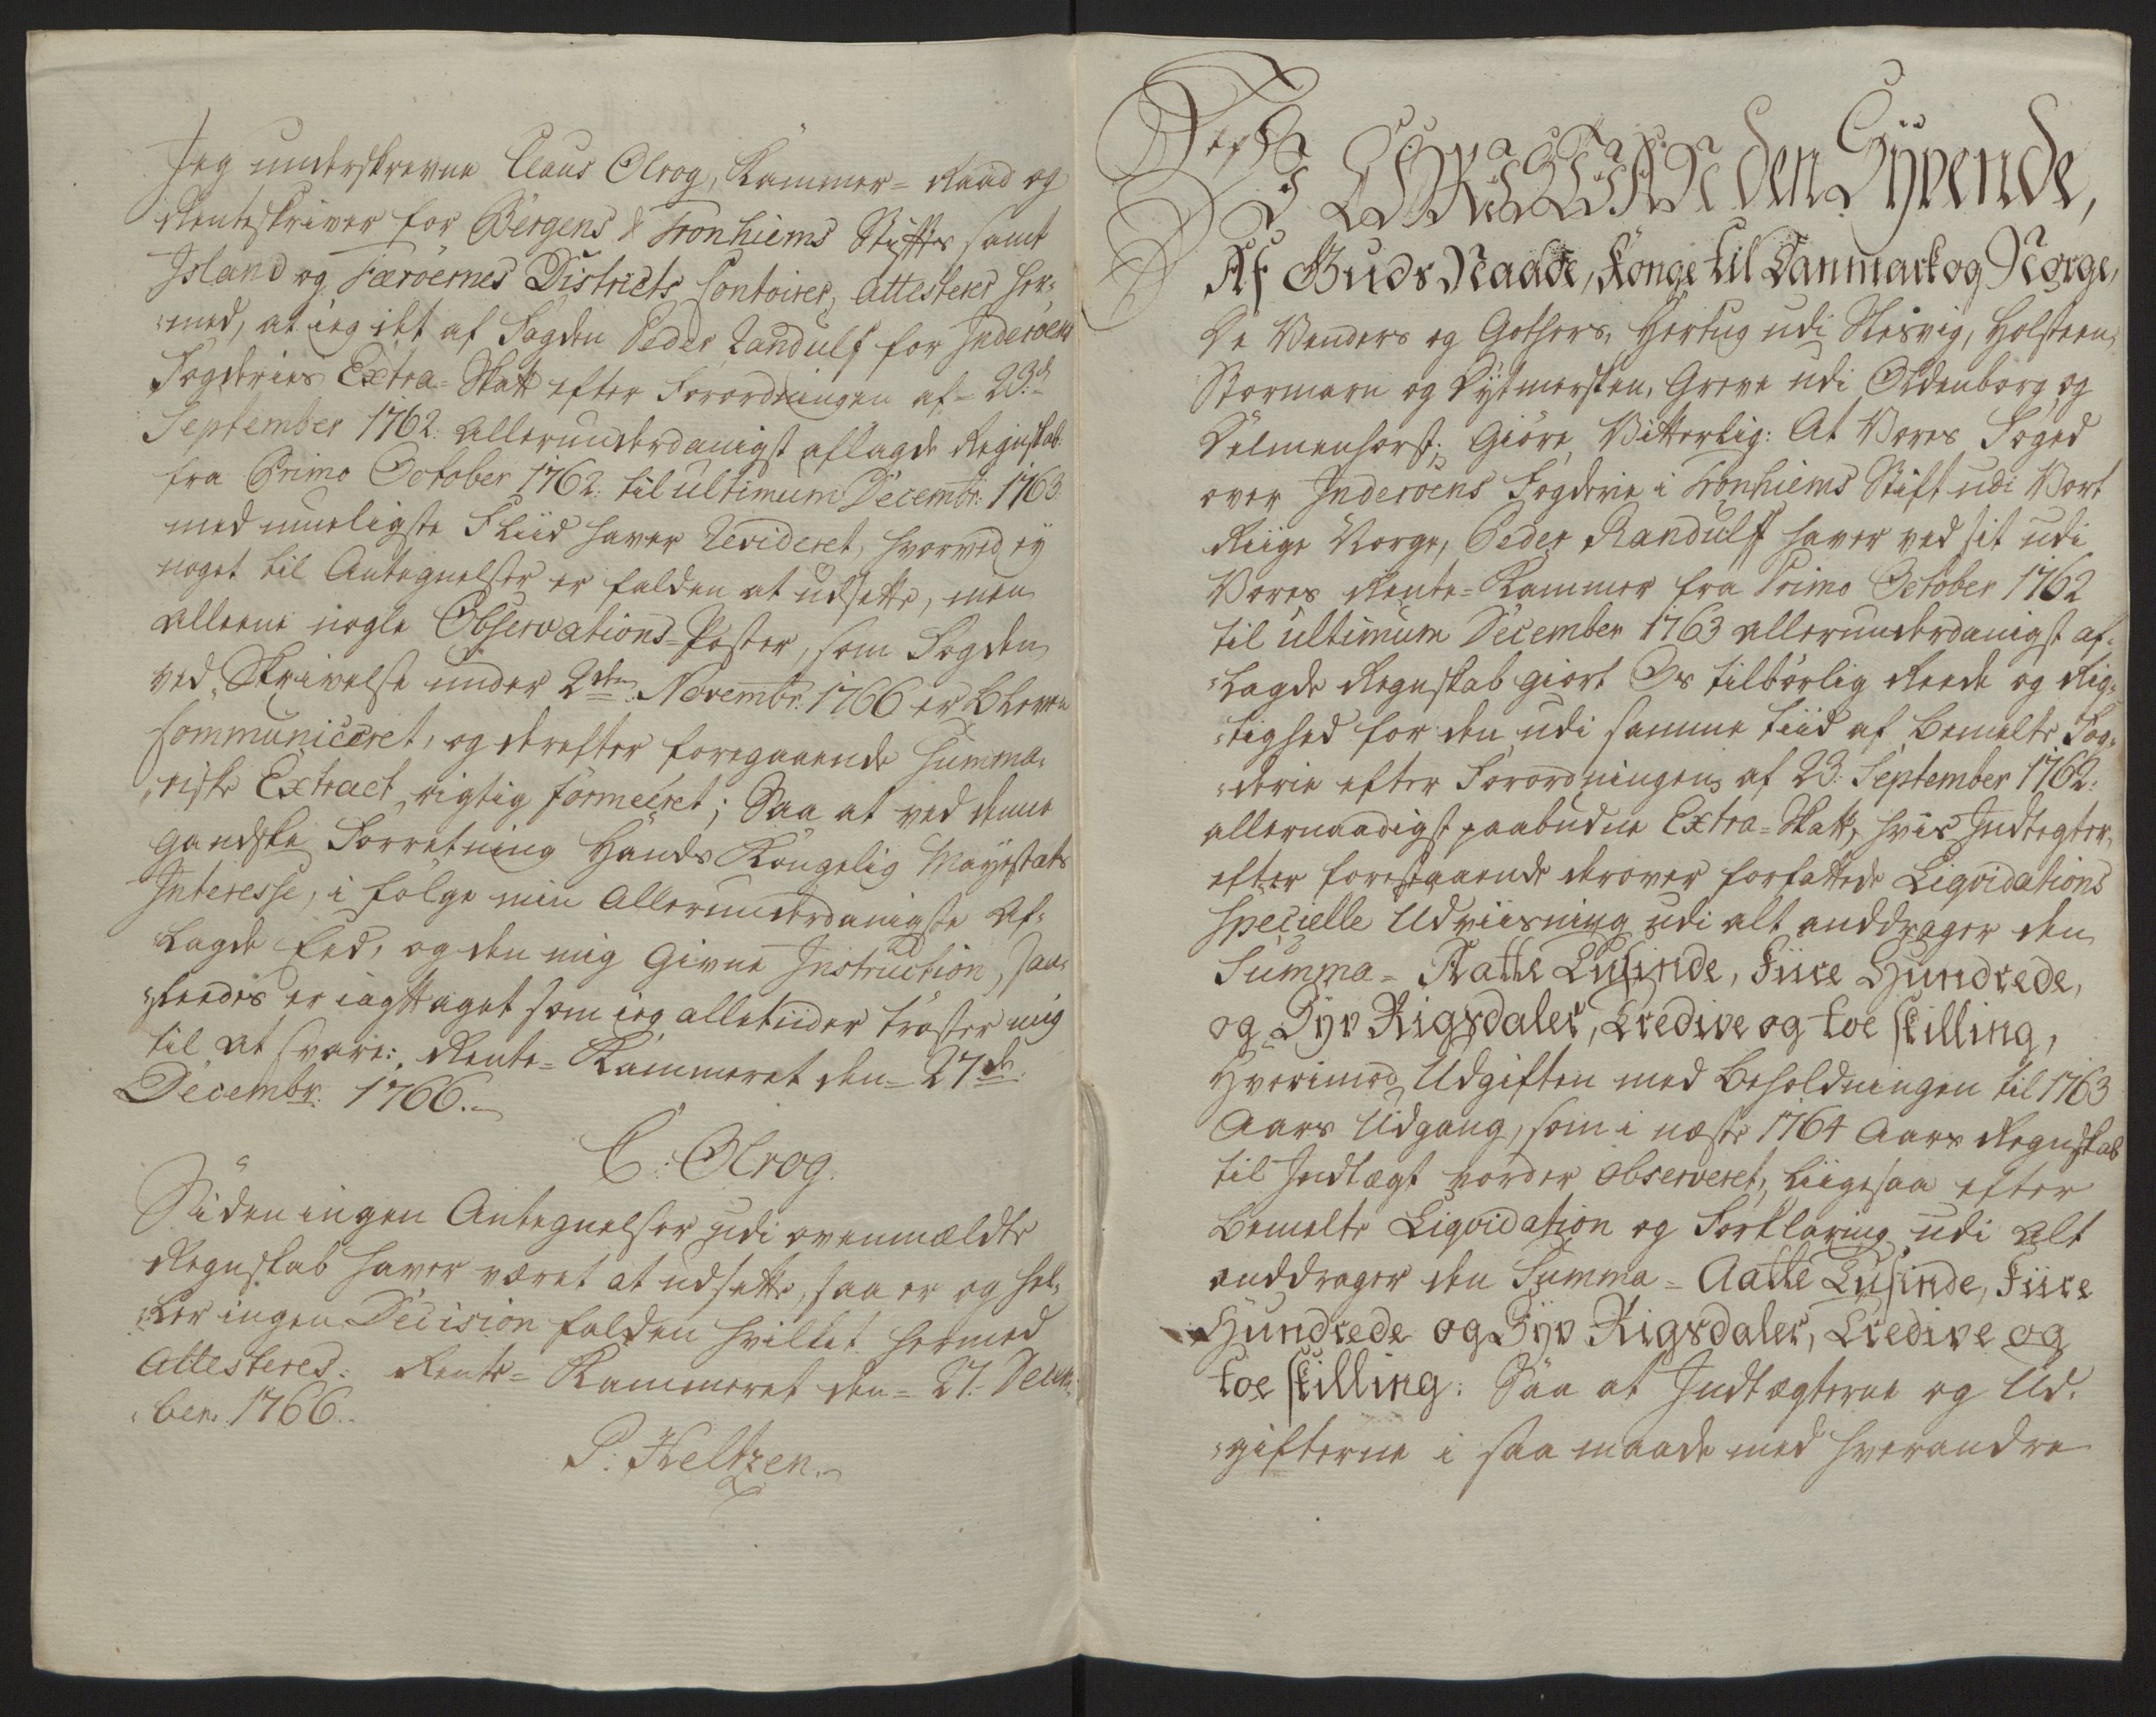 Jeg underskrevne Claus Olrog, Kammer-Raad og
Renteskriver for Bergens & Tronhiems Stifter samt
Island og Færöernes Districts Contoirer, Attesterer her-
-med, at ieg det af Fogden Peder Randulf for Inderöens
Fogderies Extra-Skatt efter Forordningen af 23.d
September 1762. allerunderdanigst aflagde Regnskab
fra Primo October 1762. til ultimum Decembr: 1763.
med mueligste Fliid haver Revideret, hvorved ey
noget til Antegnelser er falden at udsette, men
alleene nogle Observations-Poster, som Fogden
ved Skrivelse under 2den Novembr. 1766 er bleven
Communiceret, og derefter foregaaende Summa-
-riske Extract rigtig formeeret; Saa at ved denne
gandske Forretning Hands Kongelig Mayestæts
Interesse, i fölge min Allerunderdanigste Af-
lagde Eed, og den mig Givne Instruction, saa-
-leedes er iagttaget som ieg alletiider tröster mig
til at svare: Rente-Kammeret den 27de
Decembr. 1766.
C: Olrog.
Siden ingen Antegnelser udi ovenmældte
Regnskab haver været at udsette, saa er og hel-
-ler ingen Decision falden hvilket hermed
Attesteres. Rente-Kammeret den 27. Decem-
-ber. 1766.
P: Heltzen.
CHRISTIAN den Syvende,
Af Guds Naade, Konge til Danmark og Norge,
De Venders og Gothers, Hertug udi Slesvig, Holsteen,
Stormarn og Dytmersken, Greve udi Oldenborg og
Delmenhorst; Giöre Vitterlig: At Vores Foged
over Inderöens Fogderie i Tronhiems Stift udi Vort
Riige Norge, Peder Randulff haver ved sit udi
Vores Rente-Kammer fra Primo October 1762
til ultimum December 1763 allerunderdanigst af-
-lagde Regnskab giort Os tilbörlig Reede og Rig-
-tighed for den udi samme tiid af bemelte Fog-
-derie efter Forordningen af 23. September 1762.
allernaadigst paabudne Extra-Skatt, hvis Indtegter,
efter forestaaende derover forfattede Liqvidations
specielle Udviisning udi alt anddrager den
Summa - Aatte Tusinde, Fiire Hundrede,
og Syv Rigsdaler, Tredive og toe skilling,
Hvorimod Udgiften med Beholdningen til 1763
Aars Udgang, som i næste 1764 Aars Regnskab
til Indtægt vorder observeret, liigesaa efter
bemelte Liqvidation og Forklaring udi alt
anddrager den Summa - Aatte Tusinde, Fiire
Hundrede og Syv Rigsdaler, Tredive og
toe skilling: Saa at Indtægterne og Ud-
-gifterne i saa maade med hverandre